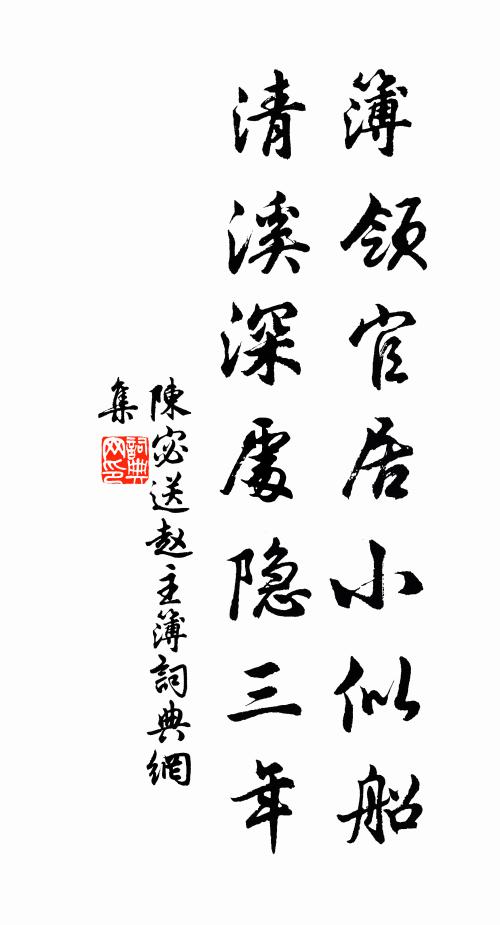 簿領官居小似船
清溪深處隐三年
陳宓送赵主簿詞典網
集
詞典
网印